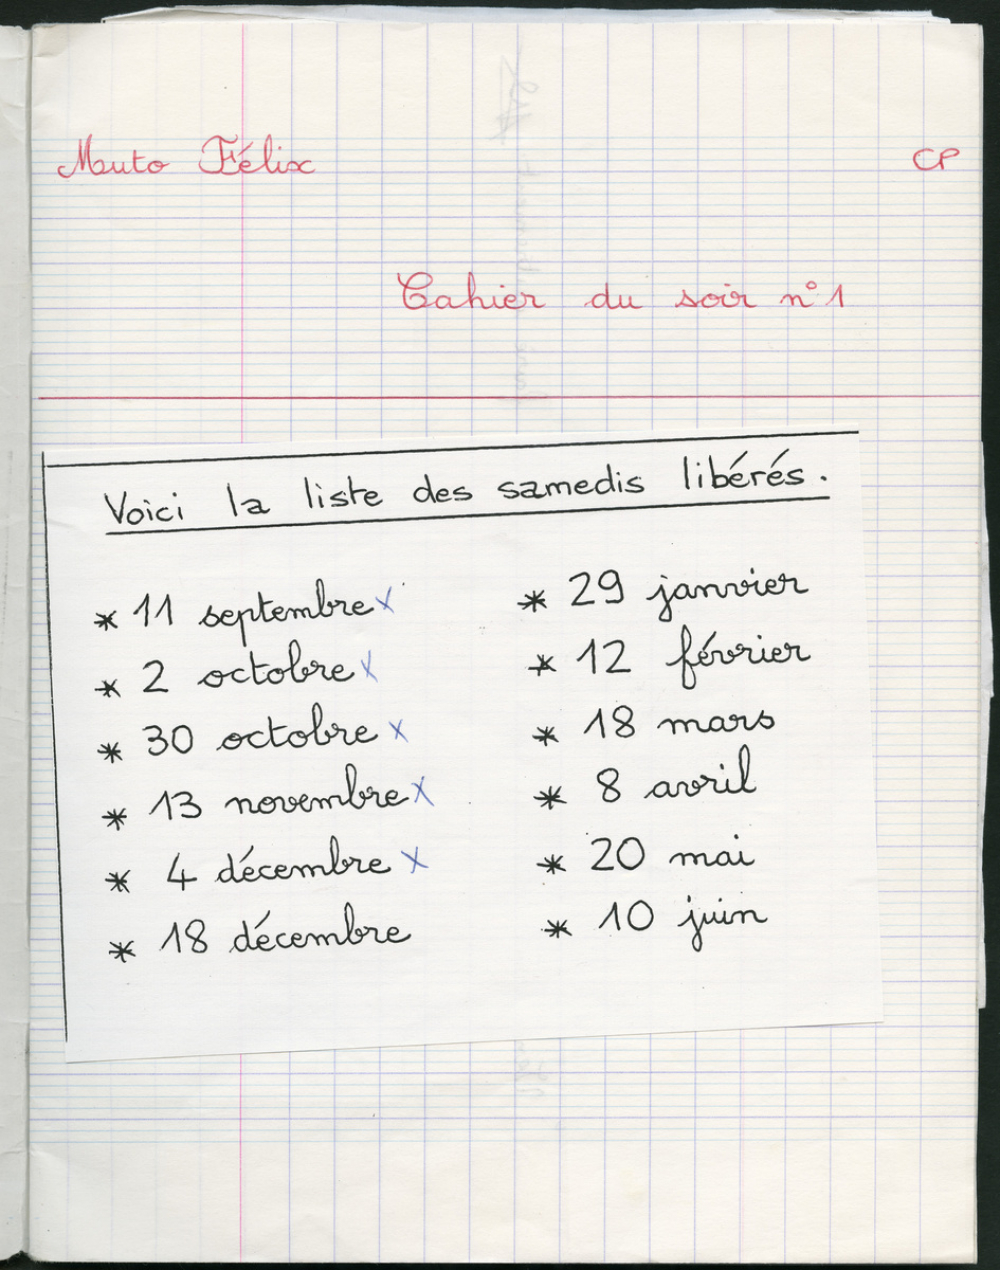 Muto Félix
CP
Cahier du soir n°1
Voici la liste des samedis libérés.
* 11 septembre x
* 2 octobre x
* 30 octobre x
* 13 novembre x
* 4 décembre x
* 18 décembre
* 29 janvier
* 12 février
* 18 mars
* 8 avril
* 20 mai
* 10 juin